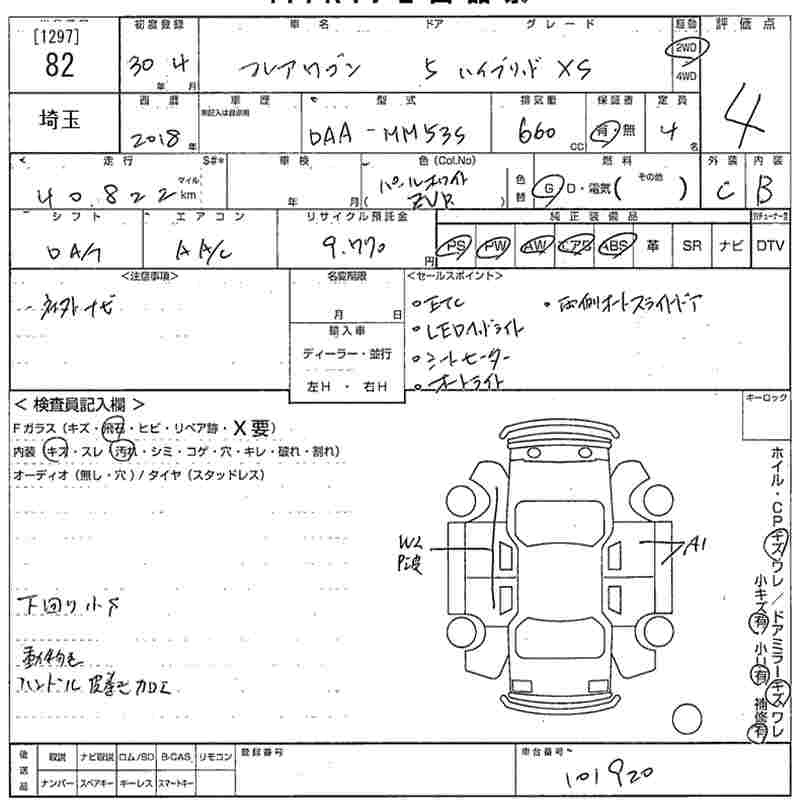 [1297]
82
初度登録
30年 4月
車名
フレアワゴン
ドア
5
グレード
ハイブリッド XS
駆動
2WD
4WD
評価点
4
埼玉
西暦
2018年
車歴
無記入は自家用
型式
DAA-MM53S
排気量
660 CC
保証書
有・無
定員
4名
走行
40,822
マイル
km
S#*
車検
年 月
色(Col.No)
パールホワイト
( ZVR )
色替
燃料
G D・電気( その他 )
外装
C
内装
B
シフト
DA/T
エアコン
AA/C
リサイクル預託金
9,770円
純正装備品
PS PW AW エアB ABS 革 SR ナビ DTV
<注意事項>
名変期限
月 日
輸入車
ディーラー・並行
左H ・ 右H
<セールスポイント>
ETC
両側オートスライドドア
LEDヘッドライト
シートヒーター
オートライト
<検査員記入欄>
Fガラス(キズ・飛石・ヒビ・リペア跡・X要)
内装(キズ・スレ・汚れ・シミ・コゲ・穴・キレ・破れ・割れ)
オーディオ(無し・穴)/タイヤ(スタッドレス)
キーロック
W2
P波
A1
ホイル・CPキズワレ/ドアミラーキズワレ
小キズ有 小U有 補修有
下回り小サ
動物毛
ハンドル 皮巻き加工
後送品
取説 ナビ取説 ロム/SD B-CAS リモコン
ナンバー スペアキー キーレス スマートキー
登録番号
車台番号
101920